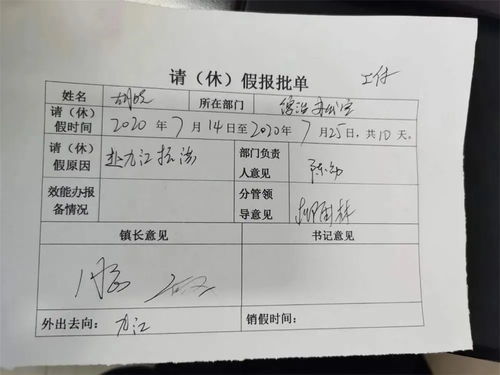 请（休）假报批单
姓名 胡 所在部门 综治办公室
请（休）假时间 2020年7月14日至2020年7月25日，共10天。
请（休）假原因 赴九江抗洪 部门负责人意见 陈
效能办报备情况 分管领导意见 林
镇长意见 书记意见
外出去向： 九江 销假时间：